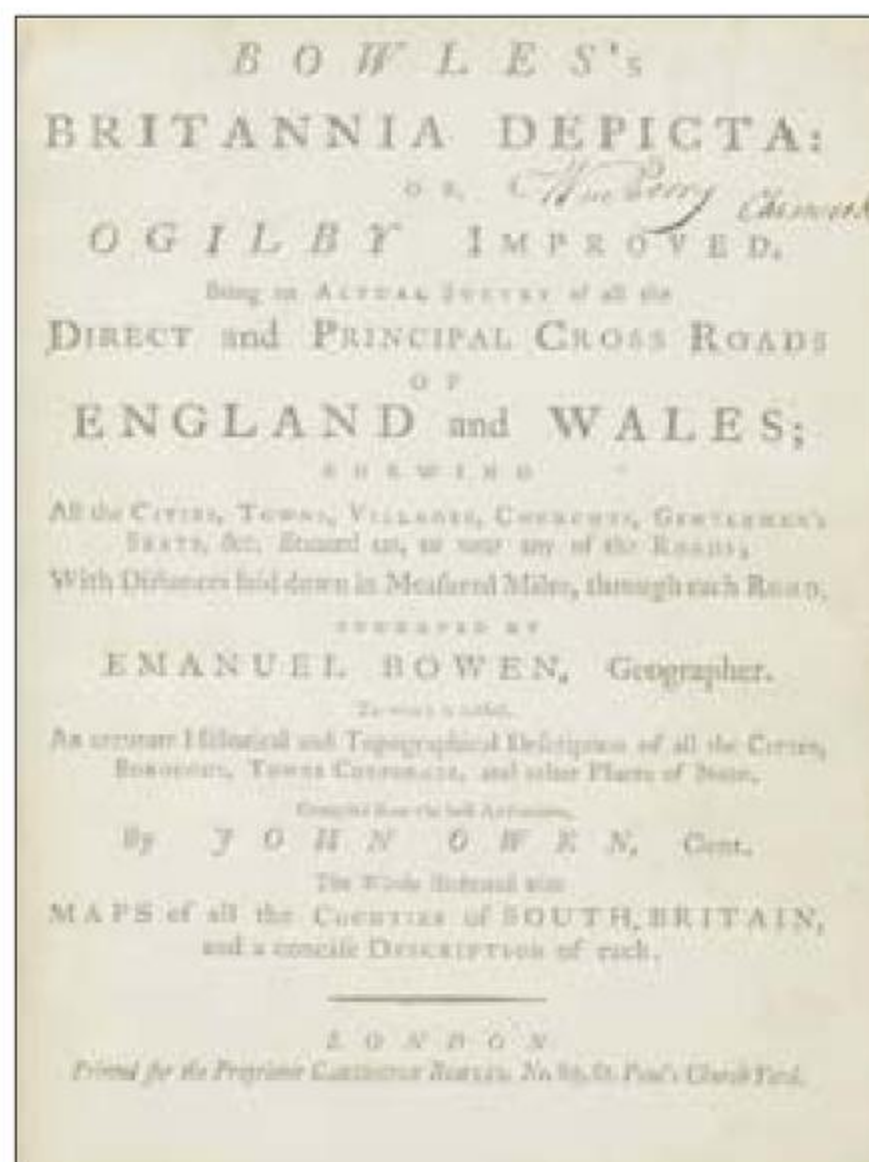 BOWLES's
BRITANNIA DEPICTA:
OR,
OGILBY IMPROVED.
Being an ACTUAL SURVEY of all the
DIRECT and PRINCIPAL CROSS ROADS
OF
ENGLAND and WALES;
SHEWING
All the CITIES, TOWNS, VILLAGES, CHURCHES, GENTLEMEN's
SEATS, &c. situated on, or near any of the ROADS,
With Distances laid down in Measured Miles, through each ROAD,
ENGRAVED BY
EMANUEL BOWEN, Geographer.
To which is added,
An accurate Historical and Topographical Description of all the CITIES,
BOROUGHS, TOWNS CORPORATE, and other Places of Note,
Compiled from the best Authorities,
By JOHN OWEN, Gent.
The Whole illustrated with
MAPS of all the COUNTIES of SOUTH BRITAIN,
and a concise DESCRIPTION of each.
LONDON
Printed for the Proprietor CARINGTON BOWLES, No. 69, St. Paul's Church Yard.